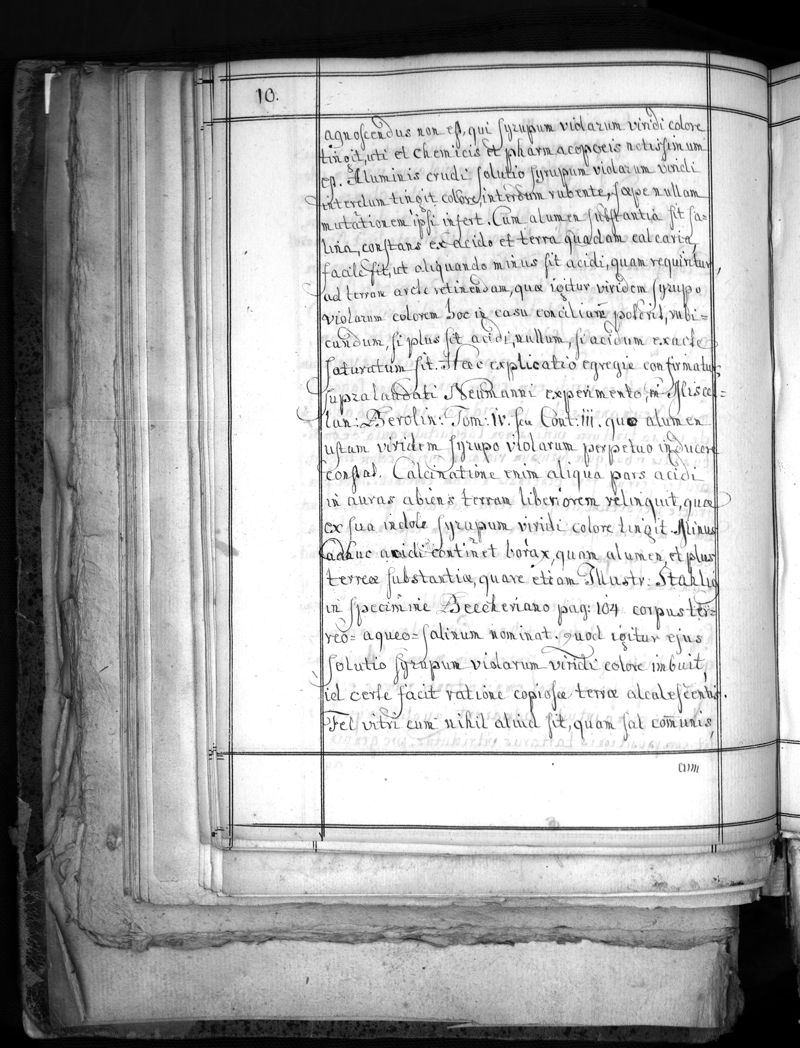 10.
agnoscendus non est, qui syrupum violarum viridi colore
tingit, uti et chemicis et pharmacopoeis notissimum
est. Aluminis crudi solutio syrupum violarum viridi
interdum tingit colore, interdum rubente, saepe nullam
mutationem ipsi infert. Cum alumen substantia sit sa-
lina, constans ex acido et terra quadam calcaria,
facile fit, ut aliquando minus sit acidi, quam requiritur,
ad terram arcte retinendam, quae igitur viridem syrupo
violarum colorem hoc in casu conciliare poterit, rubi=
cundum, si plus sit acidi, nullum, si acidum exacte
saturatum sit. Haec explicatio egregie confirmatur
supralaudati Neumanni experimento, in Miscel-
lan: Berolin: Tom: IV. seu Cont: III. quo alumen
ustum viridem syrupo violarum perpetuo inducere
constat. Calcinatione enim aliqua pars acidi
in auras abiens terram liberiorem relinquit, quae
ex sua indole syrupum viridi colore tingit. Minus
adhuc acidi continet borax, quam alumen, et plus
terreae substantiae, quare etiam Illustr: Stahlig
in specimine Beccheriano pag: 104 corpus ter-
reo= aqueo= salinum nominat. quod igitur ejus
solutio syrupum violarum viridi colore imbuit,
id certe facit ratione copiosae terrae alcalescentis.
Fel vitri cum nihil aliud sit, quam sal com̄unis,
cum